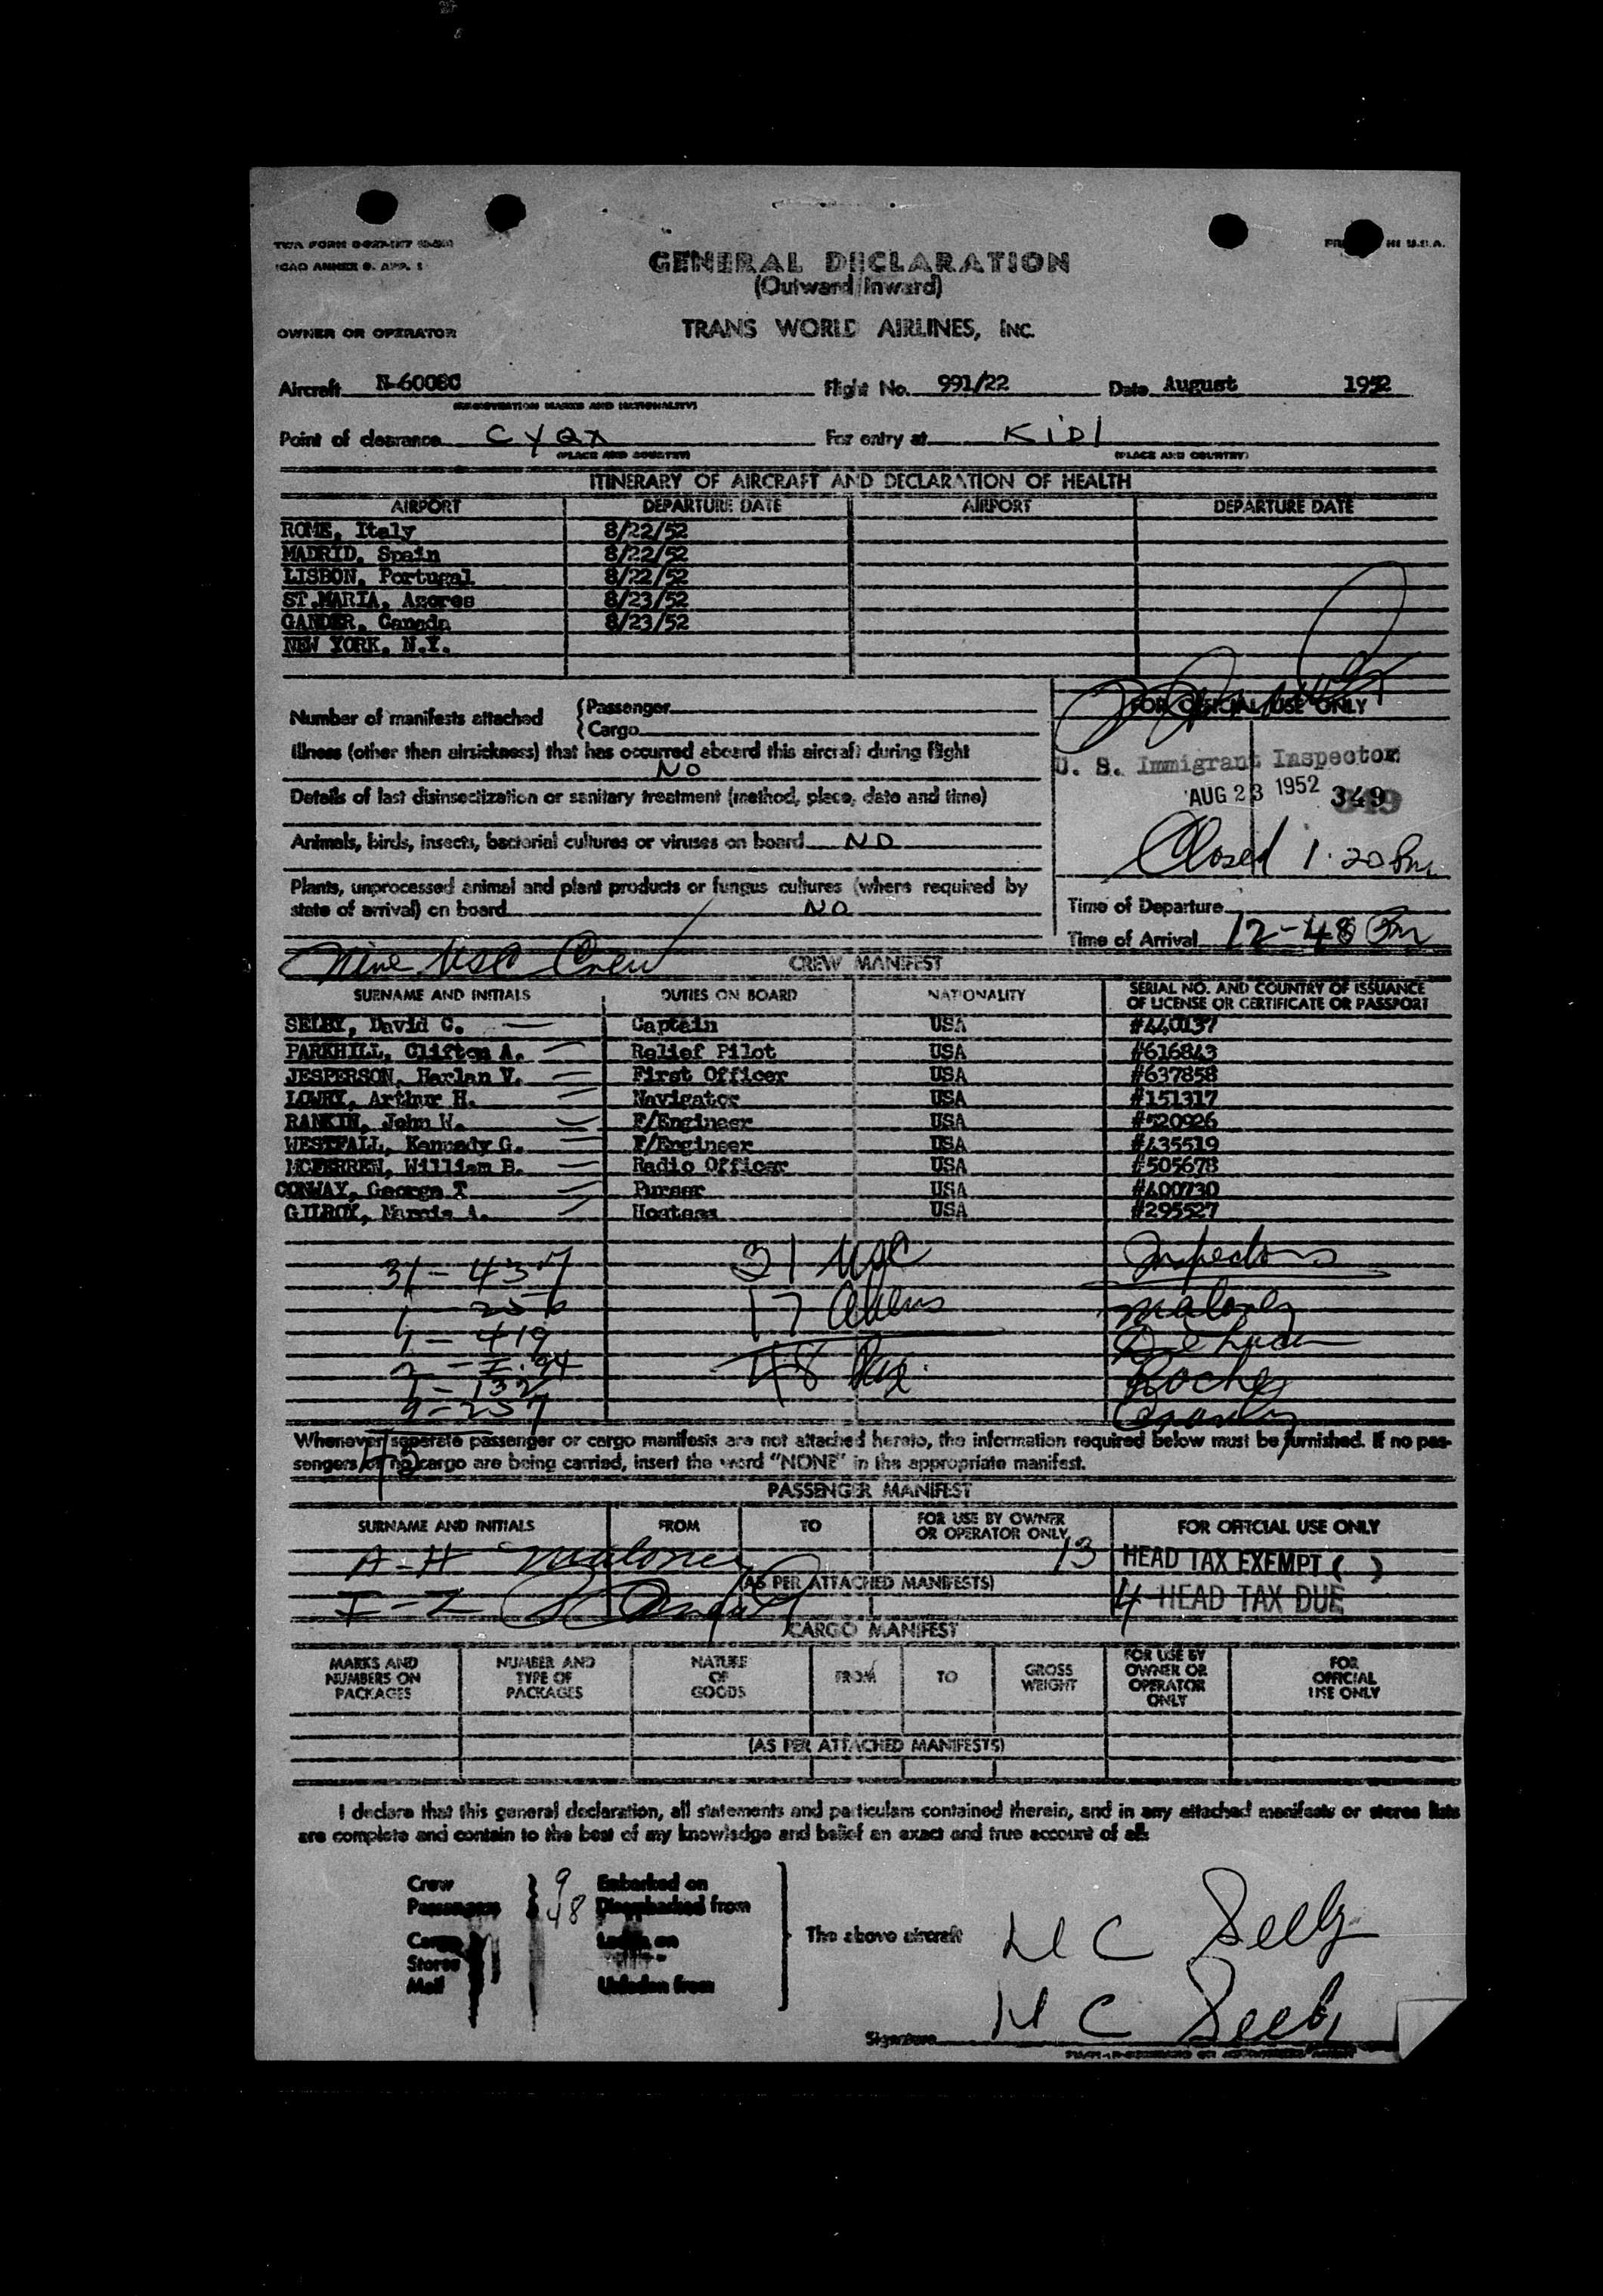 GENERAL DECLARATION
(Outward/Inward)
ICAO ANNEX 9. APP. 1
OWNER OR OPERATOR TRANS WORLD AIRLINES, INC.
Aircraft N-6008C Flight No. 991/22 Date August 1952
(REGISTRATION MARKS AND NATIONALITY)
Point of clearance CYQX For entry at KIDL
(PLACE AND COUNTRY) (PLACE AND COUNTRY)
ITINERARY OF AIRCRAFT AND DECLARATION OF HEALTH
AIRPORT DEPARTURE DATE AIRPORT DEPARTURE DATE
ROME, Italy 8/22/52
MADRID, Spain 8/22/52
LISBON, Portugal 8/22/52
ST.MARIA, Azores 8/23/52
GANDER, Canada 8/23/52
NEW YORK, N.Y.
FOR OFFICIAL USE ONLY
Number of manifests attached { Passenger
{ Cargo
Illness (other than airsickness) that has occurred aboard this aircraft during flight
NO
U. S. Immigrant Inspector
AUG 23 1952 349
Details of last disinsectization or sanitary treatment (method, place, date and time)
Animals, birds, insects, bacterial cultures or viruses on board NO
Closed 1:20 Pm
Plants, unprocessed animal and plant products or fungus cultures (where required by
state of arrival) on board NO
Time of Departure
Time of Arrival 12-48 Pm
Nine USC Crew CREW MANIFEST
SURNAME AND INITIALS DUTIES ON BOARD NATIONALITY SERIAL NO. AND COUNTRY OF ISSUANCE
OF LICENSE OR CERTIFICATE OR PASSPORT
SELBY, David C. Captain USA #440137
PARKHILL, Clifton A. Relief Pilot USA #616843
JESPERSON, Harlan V. First Officer USA #637858
LOWRY, Arthur H. Navigator USA #151317
RANKIN, John W. F/Engineer USA #520926
WESTFALL, Kennedy G. F/Engineer USA #435519
MCFERREN, William B. Radio Officer USA #505678
CONWAY, George T Purser USA #400730
GILROY, Marcia A. Hostess USA #295527
31 - 437 31 USC Inspectors
17 Aliens Maloney
419 DeLuca
48 Pax. Roche
9 - 257
Whenever separate passenger or cargo manifests are not attached hereto, the information required below must be furnished. If no pas-
sengers or no cargo are being carried, insert the word "NONE" in the appropriate manifest.
PASSENGER MANIFEST
SURNAME AND INITIALS FROM TO FOR USE BY OWNER
OR OPERATOR ONLY FOR OFFICIAL USE ONLY
A-H Maloney 13 HEAD TAX EXEMPT ( )
(AS PER ATTACHED MANIFESTS)
I-Z 4 HEAD TAX DUE
CARGO MANIFEST
MARKS AND NUMBERS ON PACKAGES NUMBER AND TYPE OF PACKAGES NATURE OF GOODS FROM TO GROSS WEIGHT FOR USE BY OWNER OR OPERATOR ONLY FOR OFFICIAL USE ONLY
(AS PER ATTACHED MANIFESTS)
I declare that this general declaration, all statements and particulars contained therein, and in any attached manifests or stores lists
are complete and contain to the best of my knowledge and belief an exact and true account of all:
Crew 9 Embarked on
Passengers 48 Disembarked from
Cargo Laden on
Stores
Mail Unladen from
The above aircraft H C Seely
Signature H C Seely